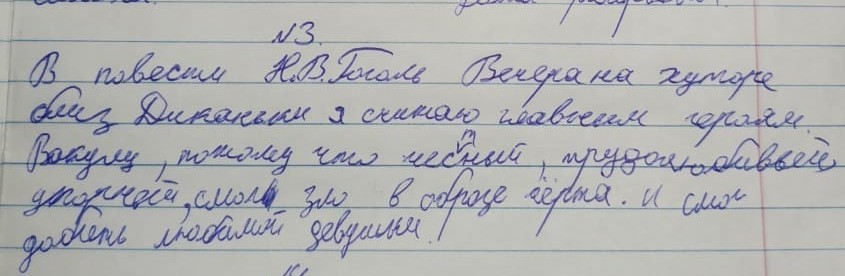 №3.
В повести Н.В.Гоголь Вечера на хуторе
близ Диканьки я считаю главным героям.
Вакулу, потому что чесТный, трудолюбивый
упорный, смог зло в образе чёрта. И смог
добить любимой девушки.